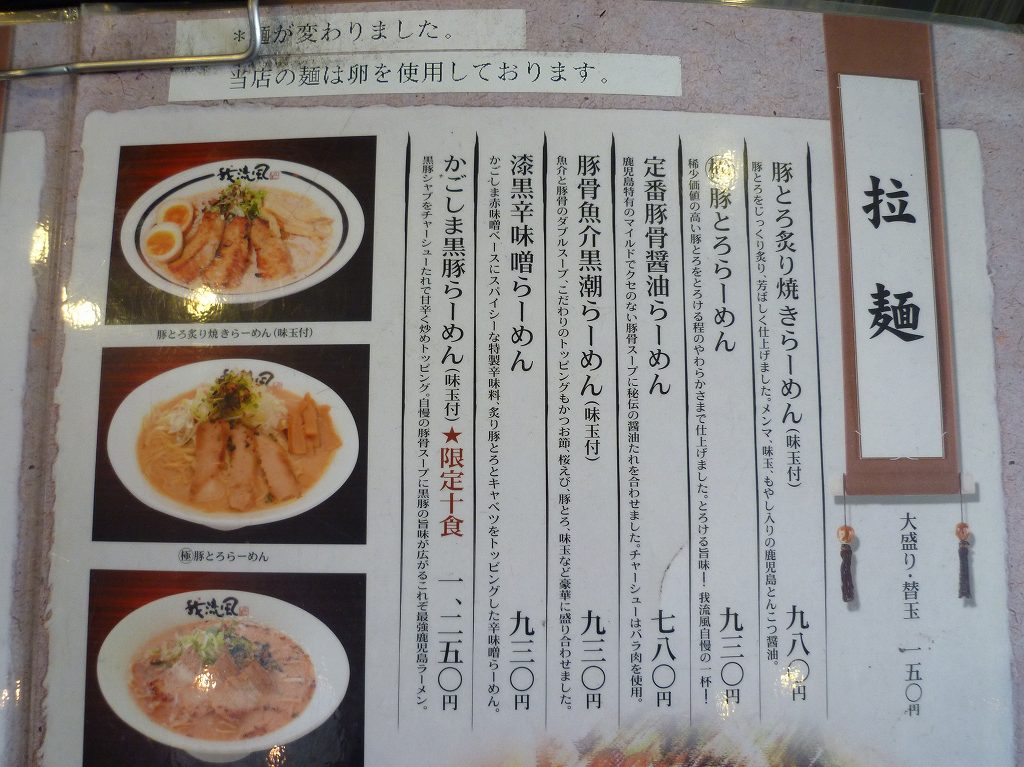 ＊麺が変わりました。
当店の麺は卵を使用しております。
拉麺
大盛り・替玉 一五〇円
豚とろ炙り焼きらーめん（味玉付） 九八〇円
豚とろをじっくり炙り、芳ばしく仕上げました。メンマ、味玉、もやし入りの鹿児島とんこつ醤油。
㊣豚とろらーめん 九三〇円
稀少価値の高い豚とろをとろける程のやわらかさまで仕上げました。とろける旨味！我流風自慢の一杯！
定番豚骨醤油らーめん 七八〇円
鹿児島特有のマイルドでクセのない豚骨スープに秘伝の醤油たれを合わせました。チャーシューはバラ肉を使用。
豚骨魚介黒潮らーめん（味玉付） 九三〇円
魚介と豚骨のダブルスープ、こだわりのトッピングもかつお節、桜えび、豚とろ、味玉など豪華に盛り合わせました。
漆黒辛味噌らーめん 九三〇円
かごしま赤味噌ベースにスパイシーな特製辛味料、炙り豚とろとキャベツをトッピングした辛味噌らーめん。
かごしま黒豚らーめん（味玉付）★限定十食 一、二五〇円
黒豚シャブをチャーシューたれで甘辛く炒めトッピング。自慢の豚骨スープに黒豚の旨味が広がるこれぞ最強鹿児島ラーメン。
我流風
豚とろ炙り焼きらーめん（味玉付）
我流風
極豚とろらーめん
我流風